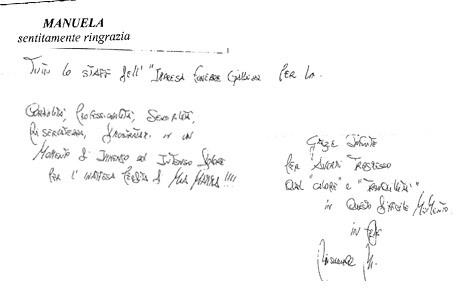 MANUELA
sentitamente ringrazia
Tutto lo STAFF dell' "IMPRESA FUNEBRE per la
PROFESSIONALITÀ, SENSIBILITÀ,
RISERVATEZZA, in un
MOMENTO di IMMENSO ed INTENSO DOLORE
PER L'IMPROVVISA PERDITA di MIA MAMMA !!!!
GRAZIE INFINITE
PER AVERMI TRASMESSO
QUEL "CALORE" e "TRANQUILLITÀ"
in QUESTO DIFFICILE MOMENTO.
in FEDE